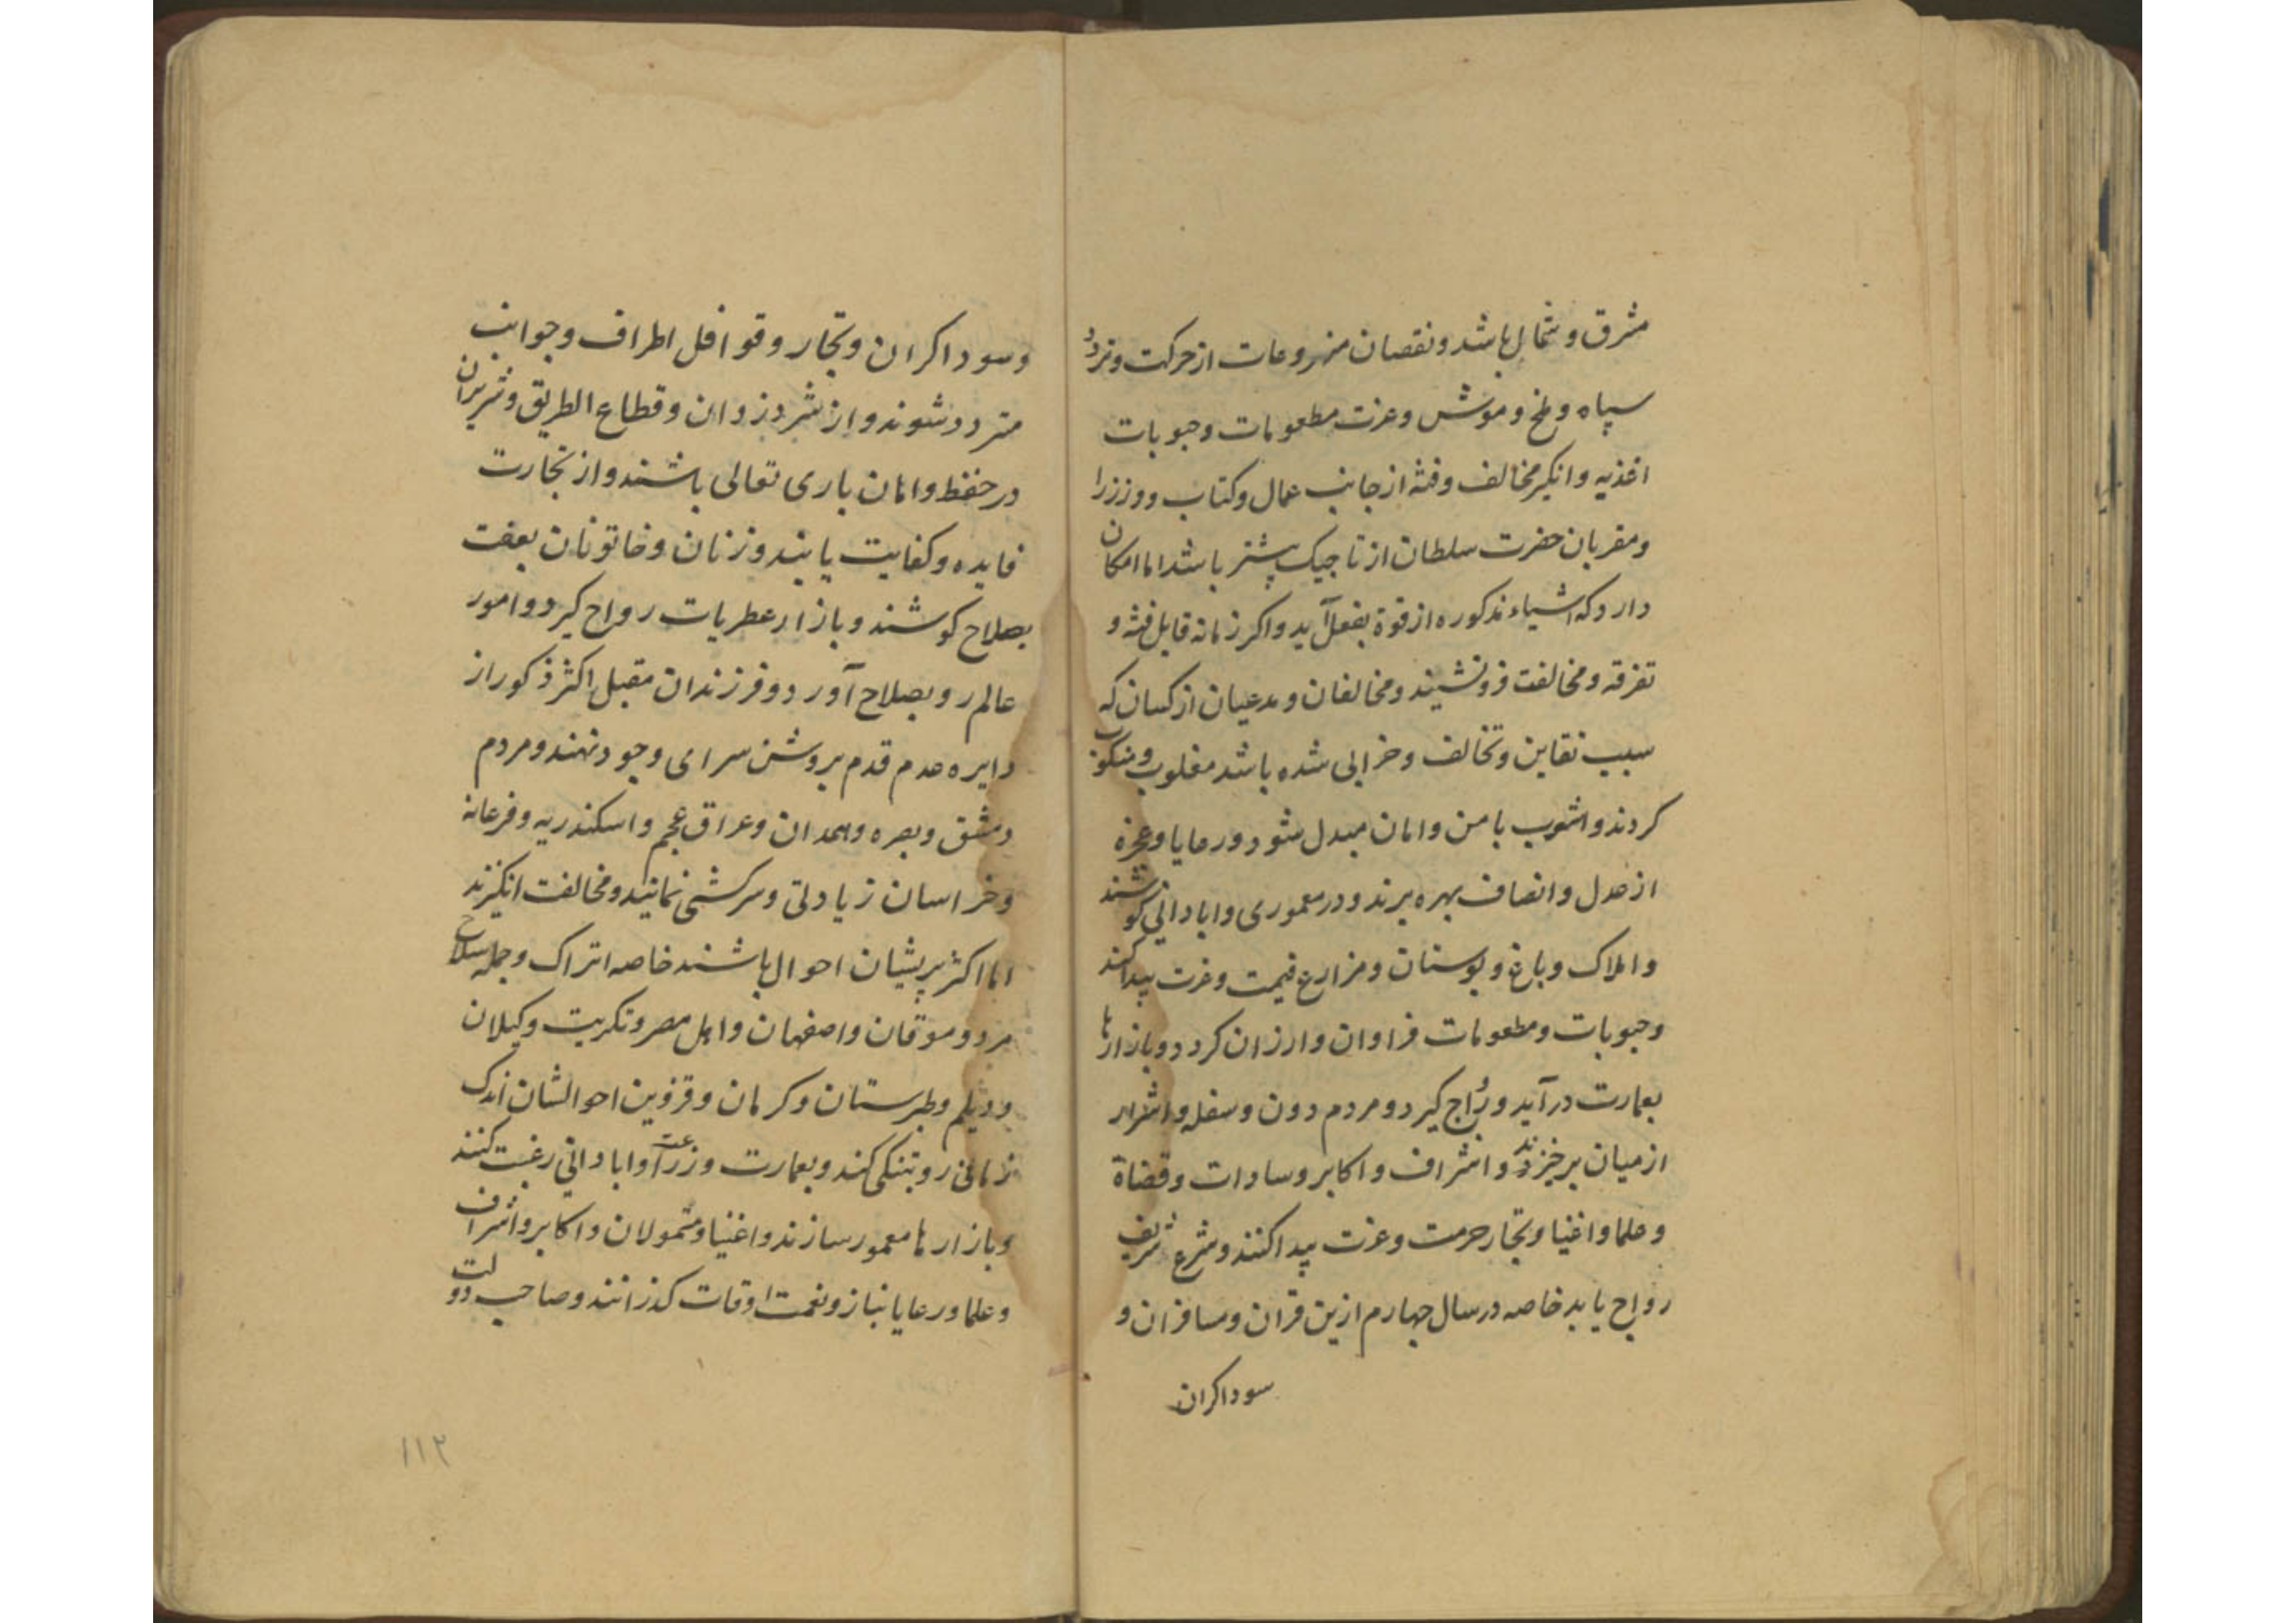 مشرق و شمال باشد و نقصان مزروعات از حرکت و تردد
سپاه و ملخ و موش و عزت مطعومات و حبوبات
اغذیه و انکیز مخالف و فتنه از جانب عمال و کتاب و وزرا
و مقربان حضرت سلطان از تاجیک بیشتر باشد اما امکان
دارد که اشیاء مذکوره از قوة بفعل آید و اکر زمانه قابل فتنه و
تفرقه و مخالفت فرونشیند و مخالفان و مدعیان از کسان که
سبب نقاین و تخالف و خرابی شده باشد مغلوب و منکوب
کردند و اشوب با من و امان مبدل شود و رعایا و عجزه
از عدل و انصاف بهره برند و در معموری و ابادانی کوشند
و املاک و باغ و بوستان و مزارع قیمت و عزت پیدا کند
و حبوبات و مطعومات فراوان و ارزان کردد و بازارها
بعمارت درآید و رواج کیرد و مردم دون و سفله و اشرار
از میان برخیزند و اشراف و اکابر و سادات و قضاة
و علما و اغنیا و تجار حرمت و عزت پیدا کنند و شرع شریف
رواج یابد خاصه در سال چهارم ازین قران و مسافران و
سوداکران
و سوداکران و تجار و قوافل اطراف و جوانب
متردد شوند و از شر دزدان و قطاع الطریق و شریران
در حفظ و امان باری تعالی باشند و از تجارت
فایده و کفایت یابند و زنان و خاتونان بعفت
بصلاح کوشند و بازار عطریات رواج کیرد و امور
عالم رو بصلاح آورد و فرزندان مقبل اکثر ذکور از
دایره عدم قدم بروشن سرای وجود نهند و مردم
دمشق و بصره و همدان و عراق عجم و اسکندریه و فرغانه
و خراسان زیادتی و سرکشی نمانید و مخالفت انکیزند
اما اکثر پریشان احوال باشند خاصه اتراک و جمله سلاح
مرد و موقان و اصفهان و اهل مصر و تکریت و کیلان
و دیلم و طبرستان و کرمان و قزوین احوالشان اندک
زمانی رو بتنکی کند و بعمارت و زراعت و ابادانی رغبت کنند
و بازارها معمور سازند و اغنیا و متمولان و اکابر و اشراف
و علما و رعایا بناز و نعمت اوقات کذرانند و صاحب دولت
۱۱۲